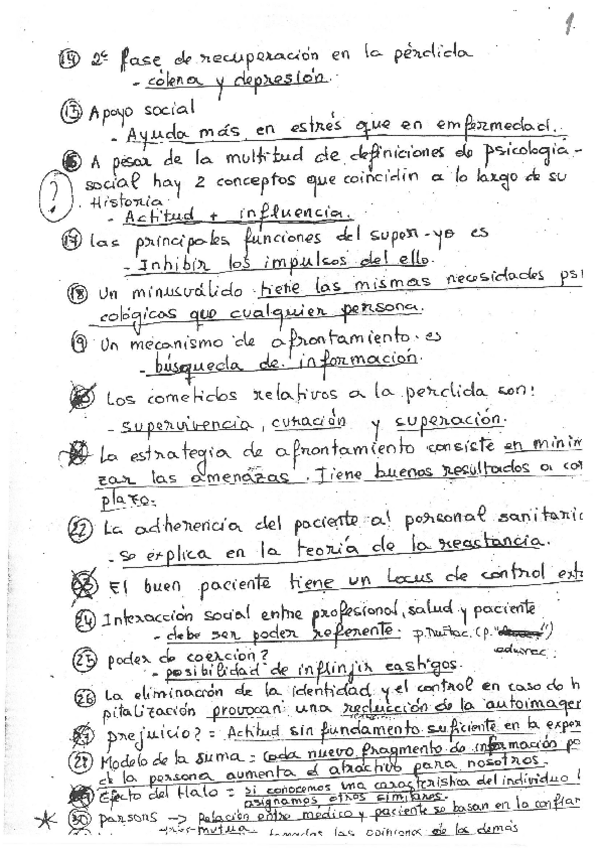 1
14 2ª fase de recuperación en la pérdida
- cólera y depresión.
15 Apoyo social
- Ayuda más en estrés que en enfermedad.
16 A pesar de la multitud de definiciones de psicología
? social hay 2 conceptos que coincidin a lo largo de su
Historia.
- Actitud + influencia.
17 las principales funciones del super-yo es
- Inhibir los impulsos del ello.
18 Un minusválido tiene las mismas necesidades psi
cológicas que cualquier persona.
19 Un mecanismo de afrontamiento es
- búsqueda de información.
Los cometidos relativos a la perdida son:
- supervivencia, curación y superación.
La estrategia de afrontamiento consiste en minim
zar las amenazas. Tiene buenos resultados a cor
plazo.
22 La adherencia del paciente al personal sanitaric
- se explica en la teoría de la reactancia.
23 El buen paciente tiene un Locus de control ext
24 Interacción social entre profesional, salud y paciente
- debe ser poder referente.
25 poder de coerción?
- posibilidad de inflinjir castigos.
26 La eliminación de la identidad y el control en caso de h
pitalización provocan una reducción de la autoimager
prejuicio? = Actitud sin fundamento suficiente en la exper
28 Modelo de la suma = Cada nuevo fragmento de información po
de la persona aumenta el atractivo para nosotros.
Efecto del Halo = si conocemos una característica del individuo l
asignamos otros similares.
30 parsons -> Relación entre médico y paciente se basan en la confiar
mutua.
las opiniones de los demás